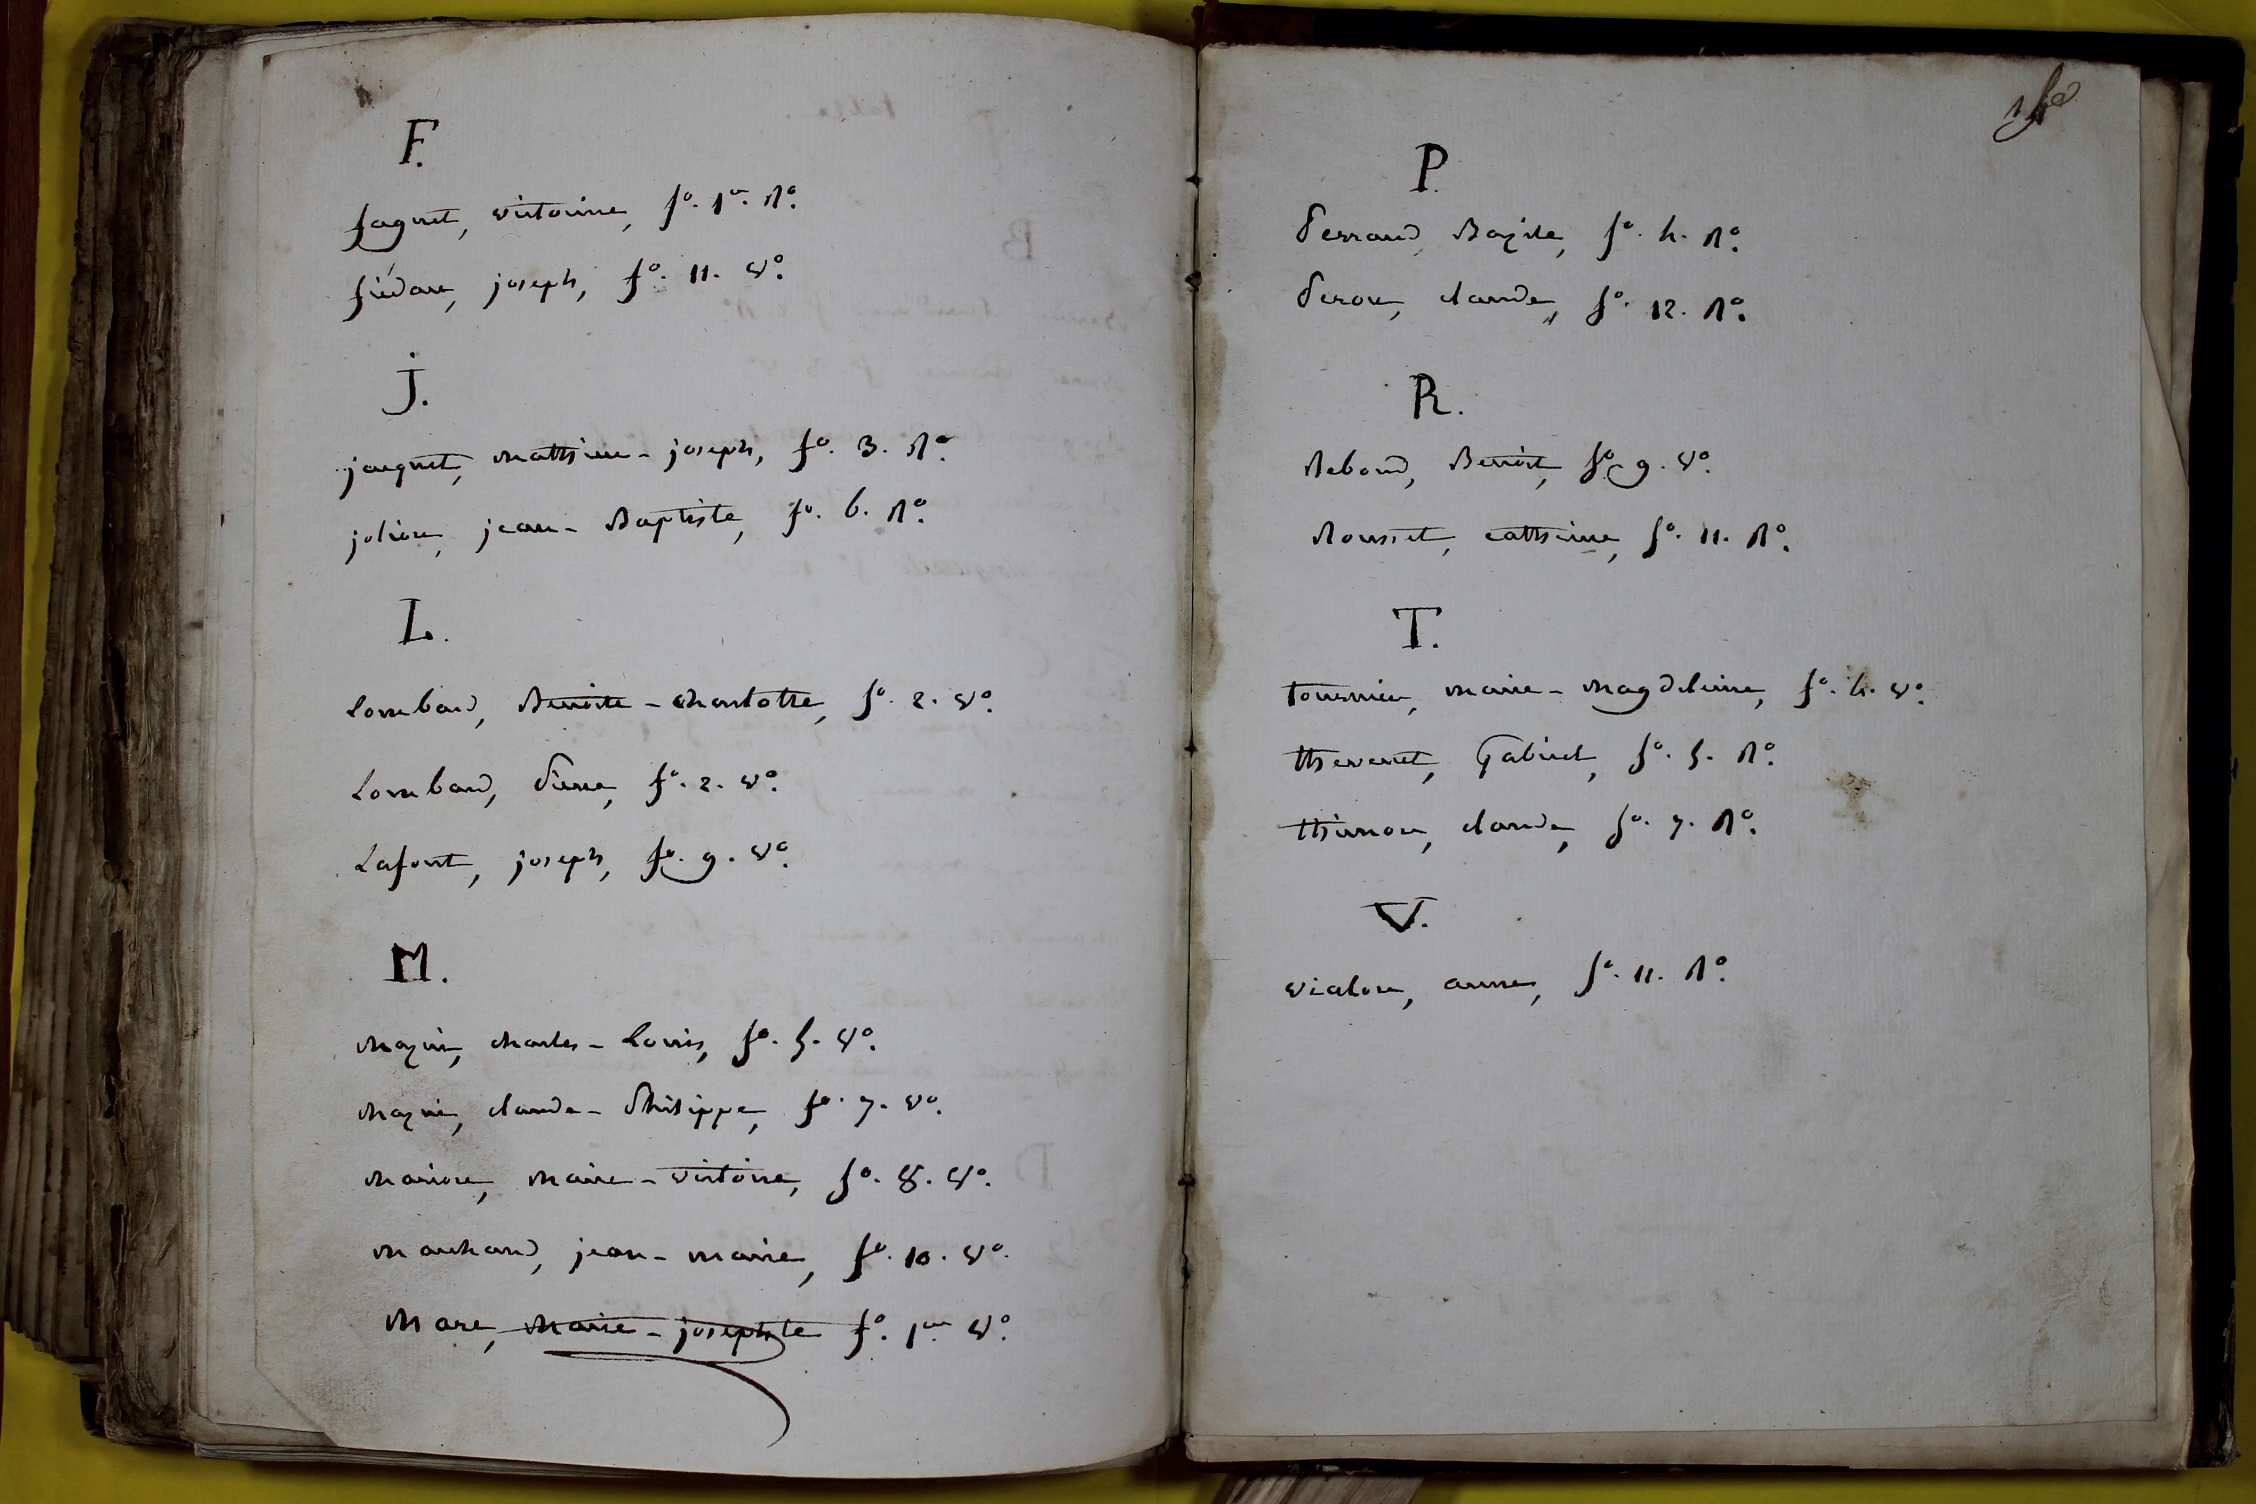 F.
faguet, victoire, fo. 1er. Ro.
fiédan, joseph, fo. 11. vo.
j.
jauguet, matthieu - joseph, fo. 3. Ro.
jolion, jean - Baptiste, fo. 6. Ro.
L.
Lombard, Benoite - charlotte, fo. 2. vo.
Lombard, Pierre, fo. 2. vo.
Lafont, joseph, fo. 9. vo.
M.
Mazin, charles - Louis, fo. 5. vo.
Mazin, claude - Philippe, fo. 7. vo.
Marion, marie - victoire, fo. 8. vo.
Marchand, jean - marie, fo. 10. vo.
Mare, Marie - josephte fo. 1er vo.
P.
Perraud, Bazile, fo. 4. Ro.
Peron, claude, fo. 12. Ro.
R.
Reboud, Benoit, fo. 9. vo.
Rousset, catherine, fo. 11. Ro.
T.
tournier, marie - magdeleine, fo. 4. vo.
thevenet, Gabriel, fo. 5. Ro.
thievon, claude, fo. 7. Ro.
V.
vialon, anne, fo. 11. Ro.